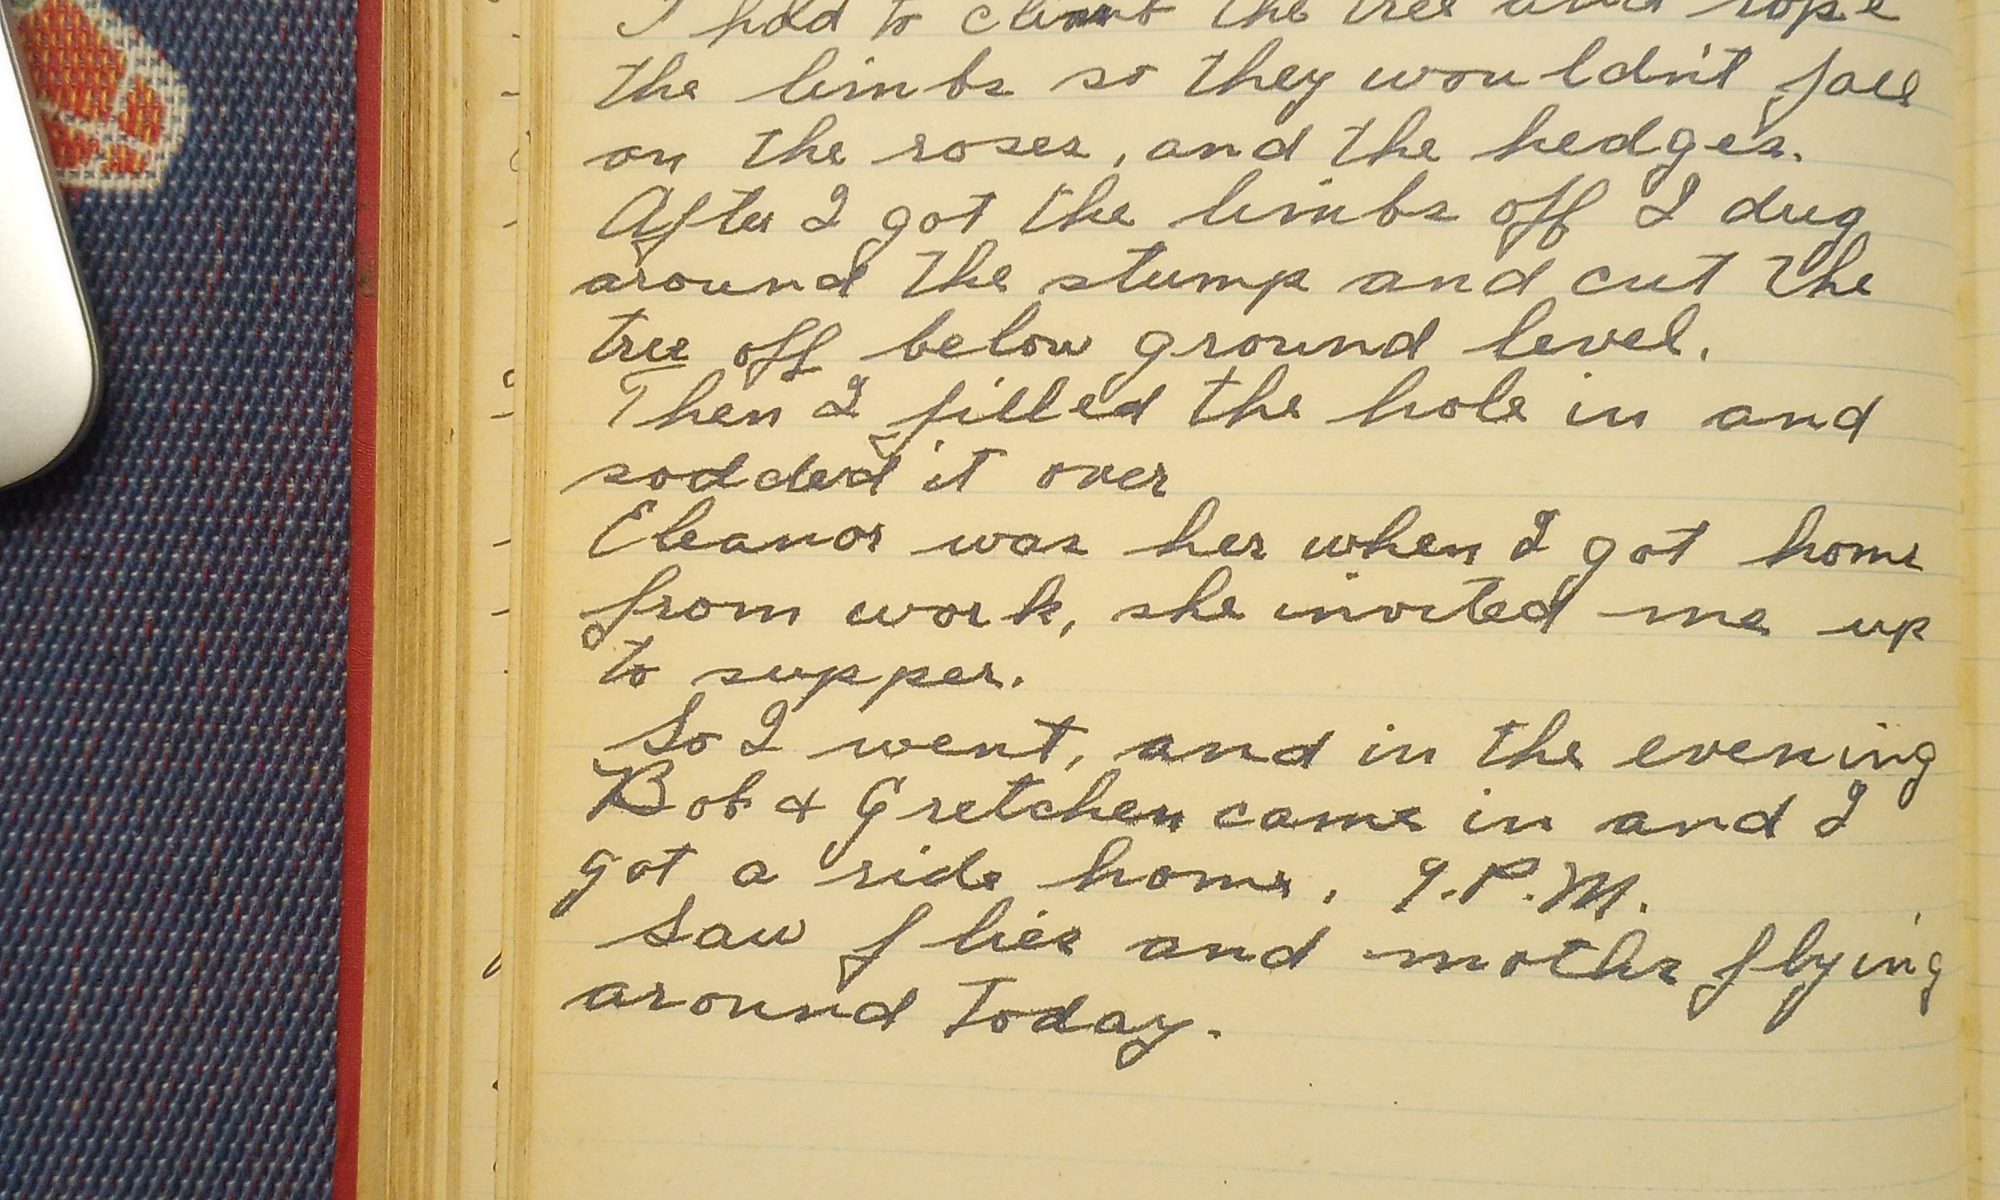 I had to climb the tree and rope
the limbs so they wouldn't fall
on the roses, and the hedges.
After I got the limbs off I dug
around the stump and cut the
tree off below ground level.
Then I filled the hole in and
sodded it over
Eleanor was her when I got home
from work, she invited me up
to supper.
So I went, and in the evening
Bob & Gretchen came in and I
got a ride home. 9.P.M.
Saw flies and moths flying
around today.